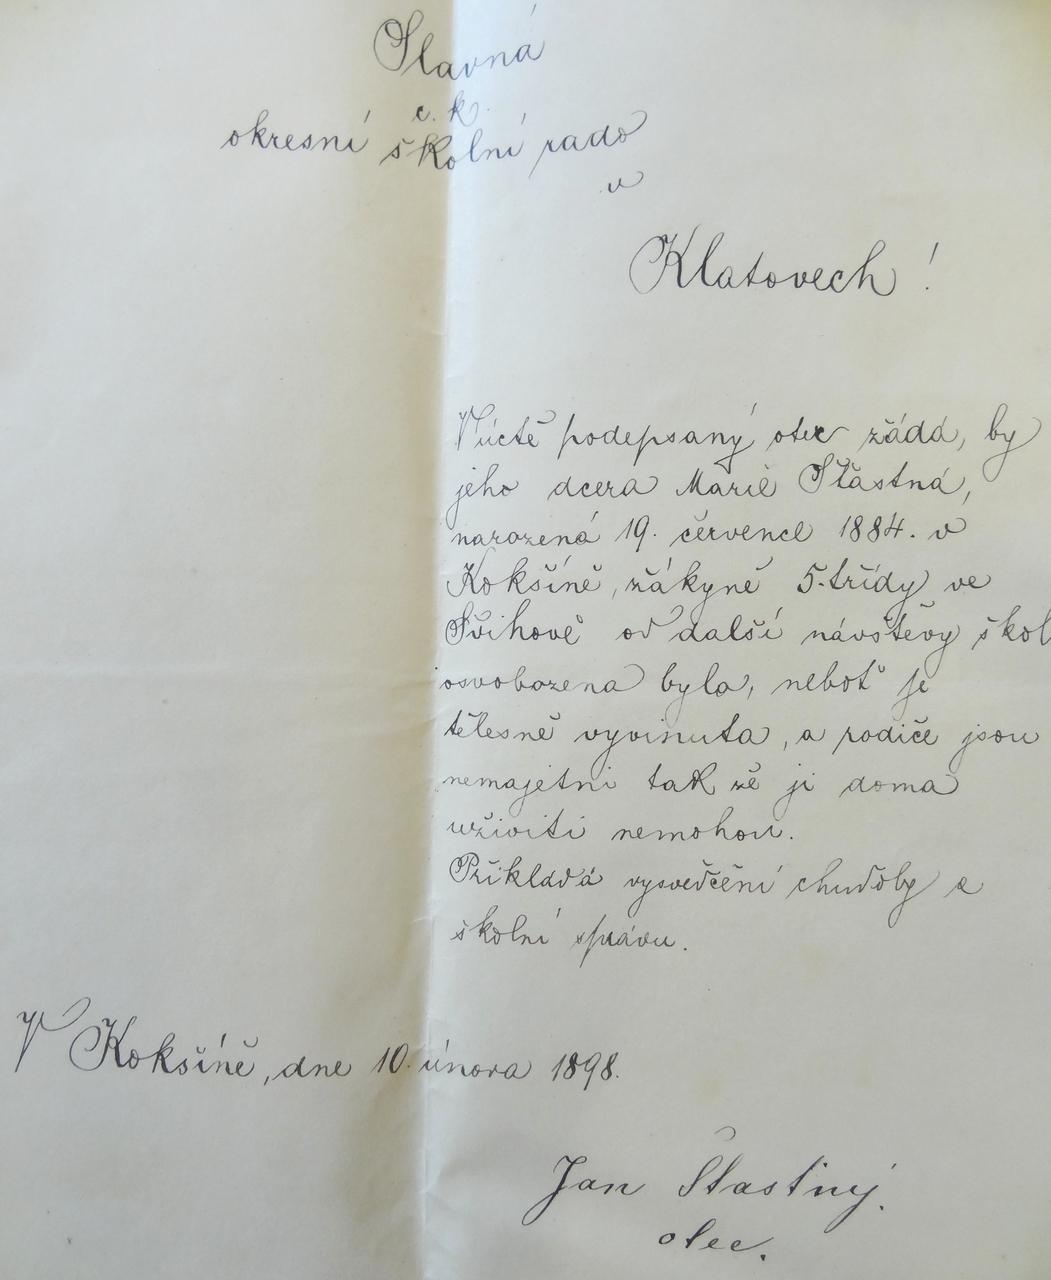 Slavná
c. k.
okresní školní rado
v
Klatovech!
V úctě podepsaný otec žádá, by
jeho dcera Marie Šťastná,
narozená 19. července 1884. v
Kokšíně, žákyně 5. třídy ve
Švihově od další návštěvy škol
osvobozena byla, neboť je
tělesně vyvinuta, a rodiče jsou
nemajetni tak že ji doma
uživiti nemohou.
Přikládá vysvědčení chudoby a
školní správu.
V Kokšíně, dne 10. února 1898.
Jan Šťastný.
otec.